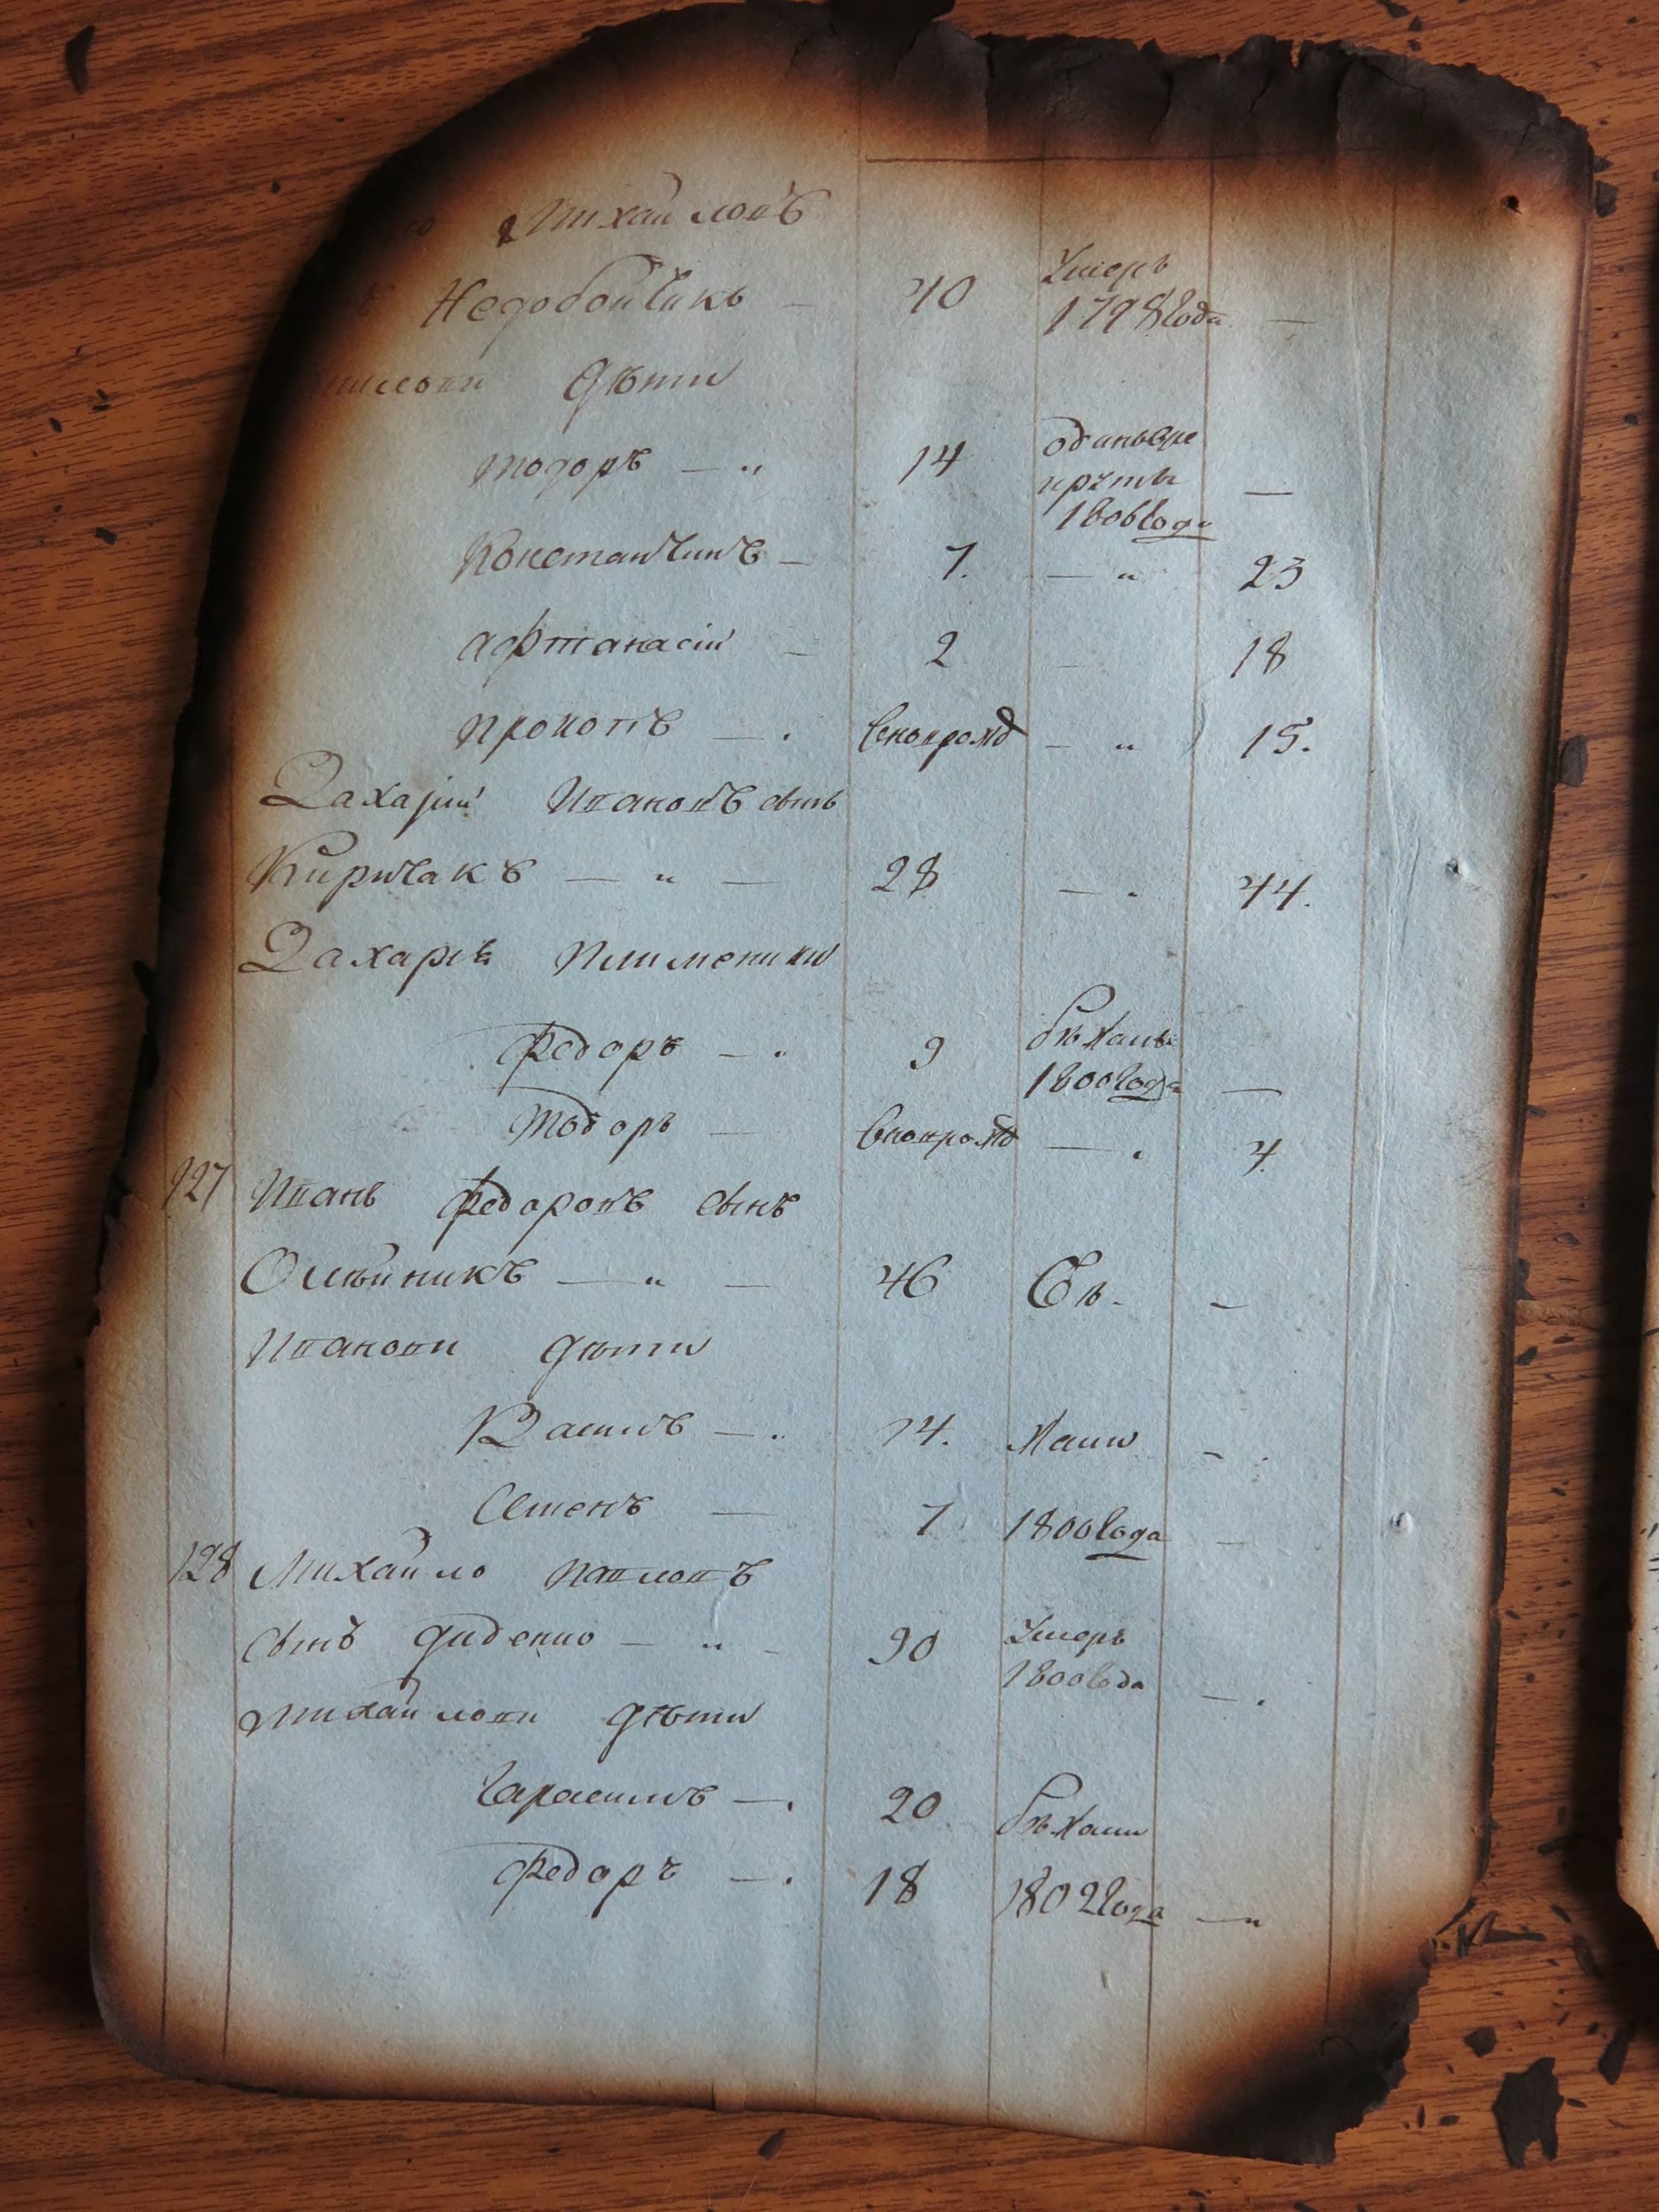 Михайловъ
Недобойтикъ — 40 Умеръ 1798 года —
дѣти
тодоръ — „ 14 1806 года —
Константинъ — 7. — „ 23
афтанасій — 2 — 18
прокопъ — . вноврожд — „ 15.
Захарій Ивановъ сынъ
Киричакъ — „ — 28 — . 44.
Захаріѣ племеники
федоръ — „ 9 бѣжалъ 1800 года —
тодоръ — вноврожд — . 4.
127 Иванъ федоровъ сынъ
Олѣйникъ — „ — 46 Бѣ- —
Иванови дѣти
Василъ — „ 14. жали —
Семенъ — 7 1800 года —
128 Михайло павловъ
сынъ диденко — „ — 90 Умеръ 1800 года — .
Михайлови дѣти
Гарасимъ — . 20 бѣжали
федоръ — . 18 1802 года — „